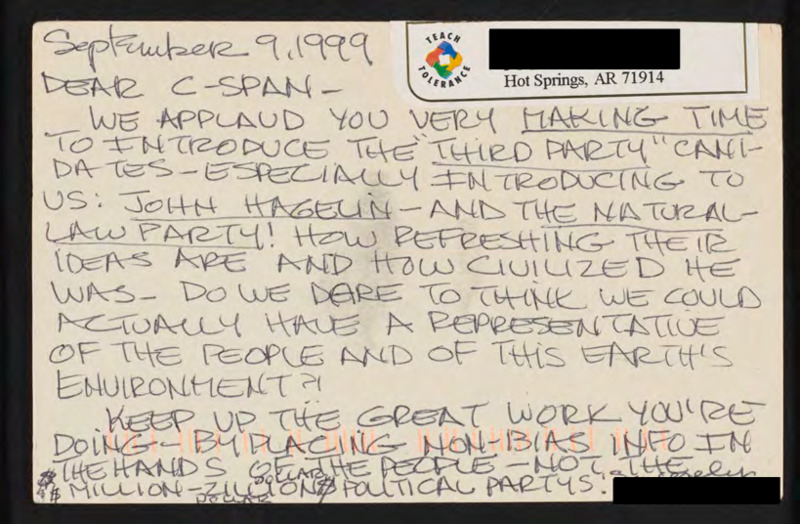 September 9, 1999
TEACH TOLERANCE
Hot Springs, AR 71914
DEAR C-SPAN-
WE APPLAUD YOU VERY MAKING TIME
TO INTRODUCE THE "THIRD PARTY" CANI-
DATES-ESPECIALLY INTRODUCING TO
US: JOHN HAGELIN-AND THE NATURAL-
LAW PARTY! HOW REFRESHING THEIR
IDEAS ARE AND HOW CIVILIZED HE
WAS- DO WE DARE TO THINK WE COULD
ACTUALLY HAVE A REPRESENTATIVE
OF THE PEOPLE AND OF THIS EARTH'S
ENVIRONMENT?!
KEEP UP THE GREAT WORK YOU'RE
DOING-BY PLACING NON-BIAS INFO IN
THE HANDS OF THE PEOPLE-NOT THE
DOLLAR
$$ MILLION-ZILLION$ POLITICAL PARTYS!
DOLLAR